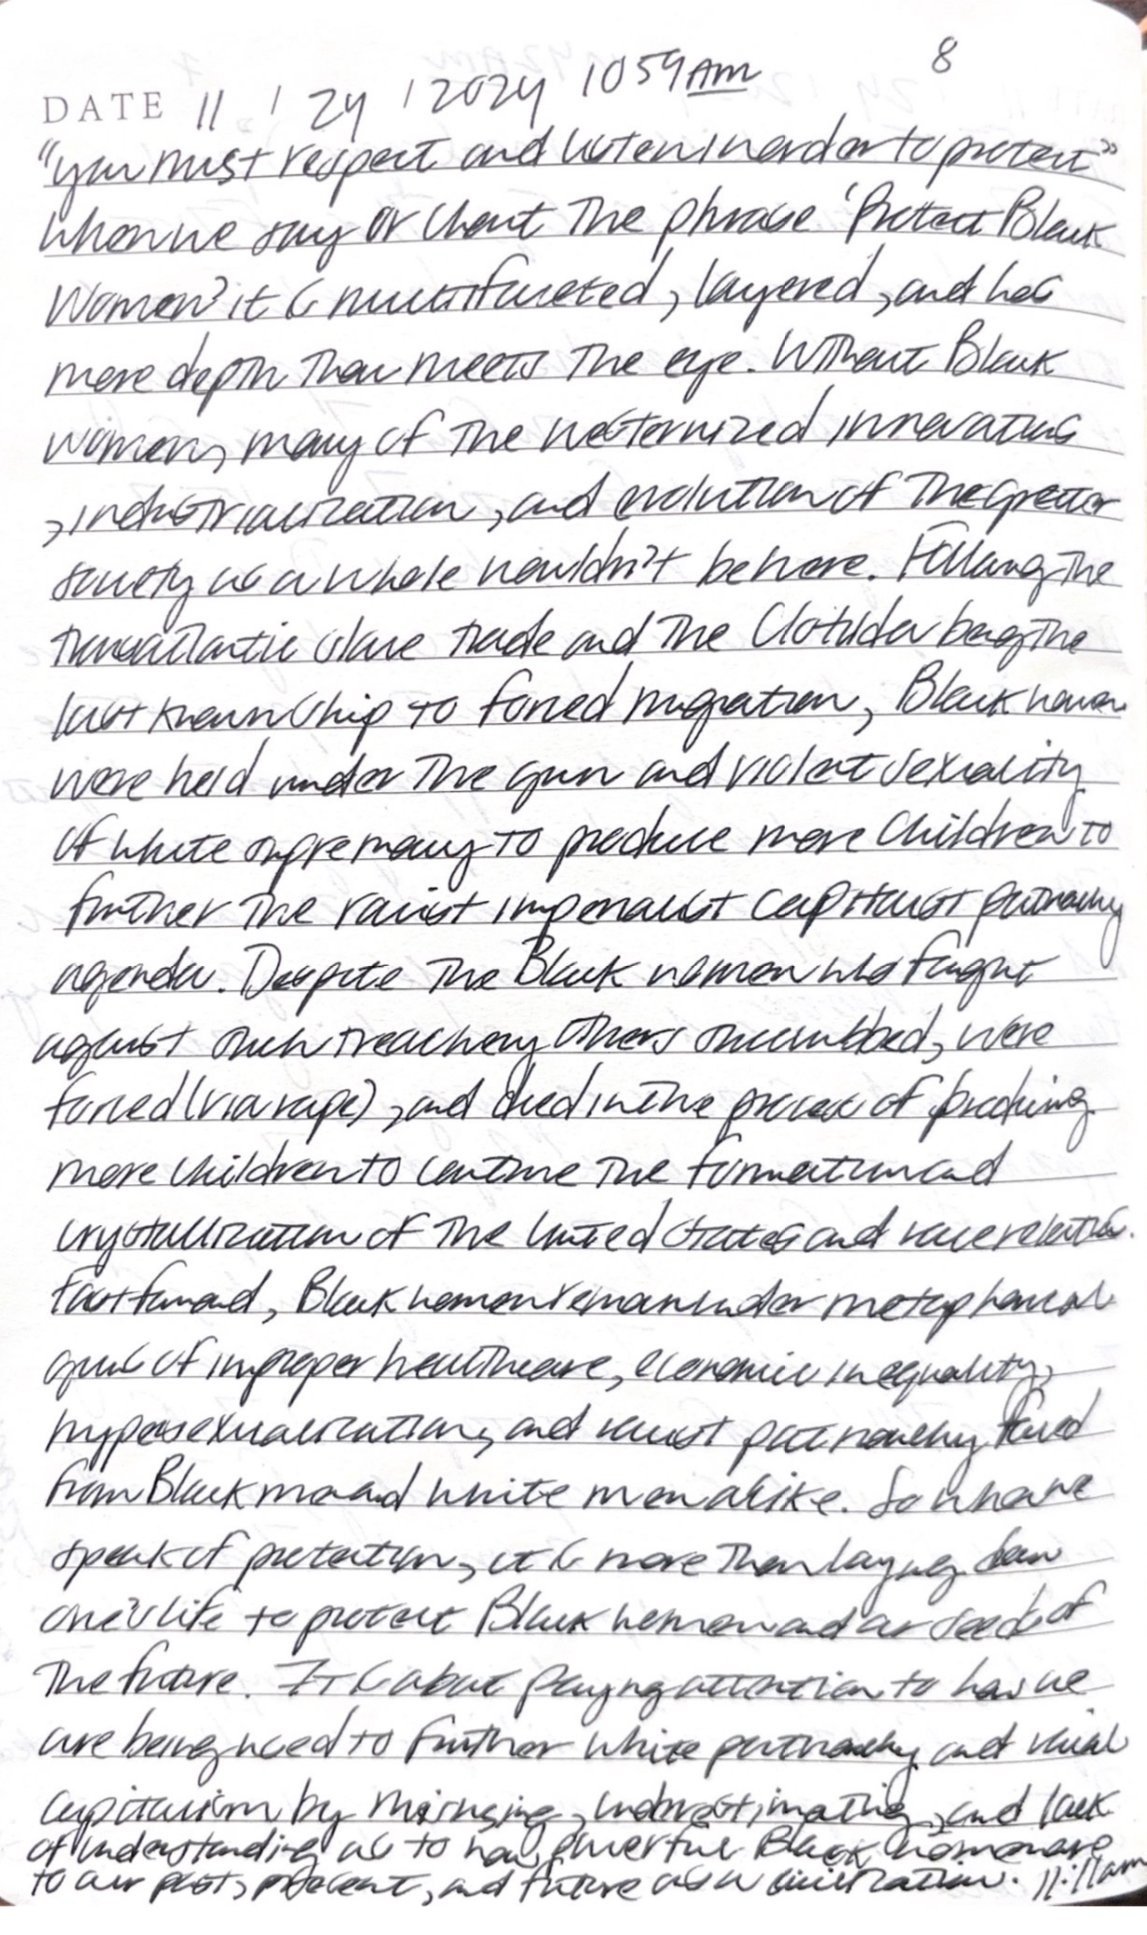 8
DATE 11 / 24 / 2024 10 59 AM
"you must respect and listen in order to protect"
When we say or chant the phrase 'Protect Black
Women' it is multifaceted, layered, and has
more depth than meets the eye. Without Black
women, many of the westernized innovations
, industrialization, and evolution of the greater
society as a whole wouldn't be here. Following the
transatlantic slave trade and the Clotilda being the
last known ship to forced migration, Black women
were held under the gun and violent sexuality
of white supremacy to produce more children to
further the racist imperialist capitalist patriarchy
agenda. Despite the Black women who fought
against such treachery others succumbed, were
forced (via rape), and died in the process of producing
more children to continue the formation and
crystallization of the United States and race relations.
Fast forward, Black women remain under metaphorical
guns of improper healthcare, economic inequality,
hypersexualization, and racist patriarchy
from Black men and white men alike. So when we
speak of protection, it is more than laying down
one's life to protect Black women and our seeds of
the future. It is about paying attention to how we
are being used to further white patriarchy and racial
capitalism by misusing, underestimating, and lack
of understanding as to how powerful Black women are
to our past, present, and future as a civilization. 11:11am